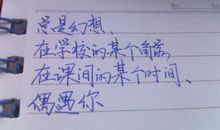 总是幻想、
在学校的某个角落
在课间的某个时间、
偶遇你